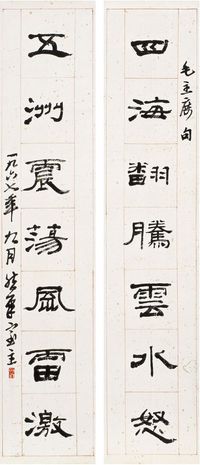 毛主席句
四海翻騰雲水怒
五洲震蕩風雷激
一九六七年九月